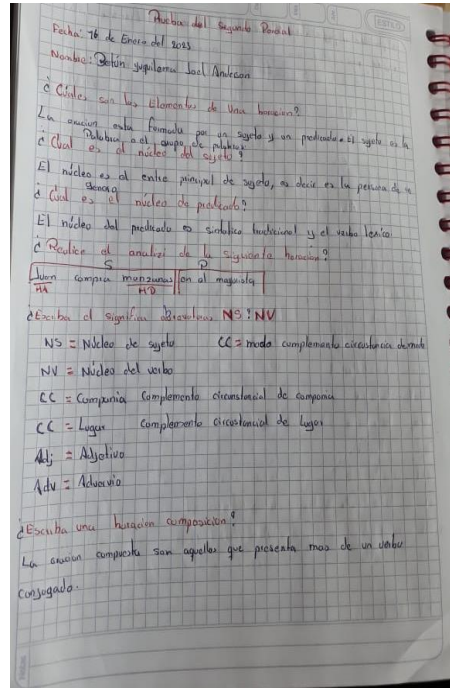 Prueba del Segundo Parcial
Fecha: 16 de Enero del 2023
Nombre: Joel Anderson
¿ Cuales son los Elementos de Una horacion?
La oracion esta formada por un sujeto y un predicado. El sujeto es la
Palabra o el grupo de palabras
¿ Cual es el núcleo del sujeto?
El núcleo es el principal de sujeto, es decir es la persona de
¿ Cual es el núcleo de predicado?
El núcleo del predicado es y el verbo lexico.
¿ Realice el analisi de la siguiente horacion?
S P
Juan compra manzanas en el
MD
¿Escriba el significa NS? NV
NS = Núcleo de sujeto CC = modo complemento circustancia de modo
NV = Núcleo del verbo
CC = Compania Complemento circunstancial de compania
CC = Lugar complemento circustancial de lugar
Adj = Adjetivo
Adv = Advervio
¿Escriba una horacion composicion?
La oracion compuesta son aquellas que presenta mas de un verbo
conjugado.